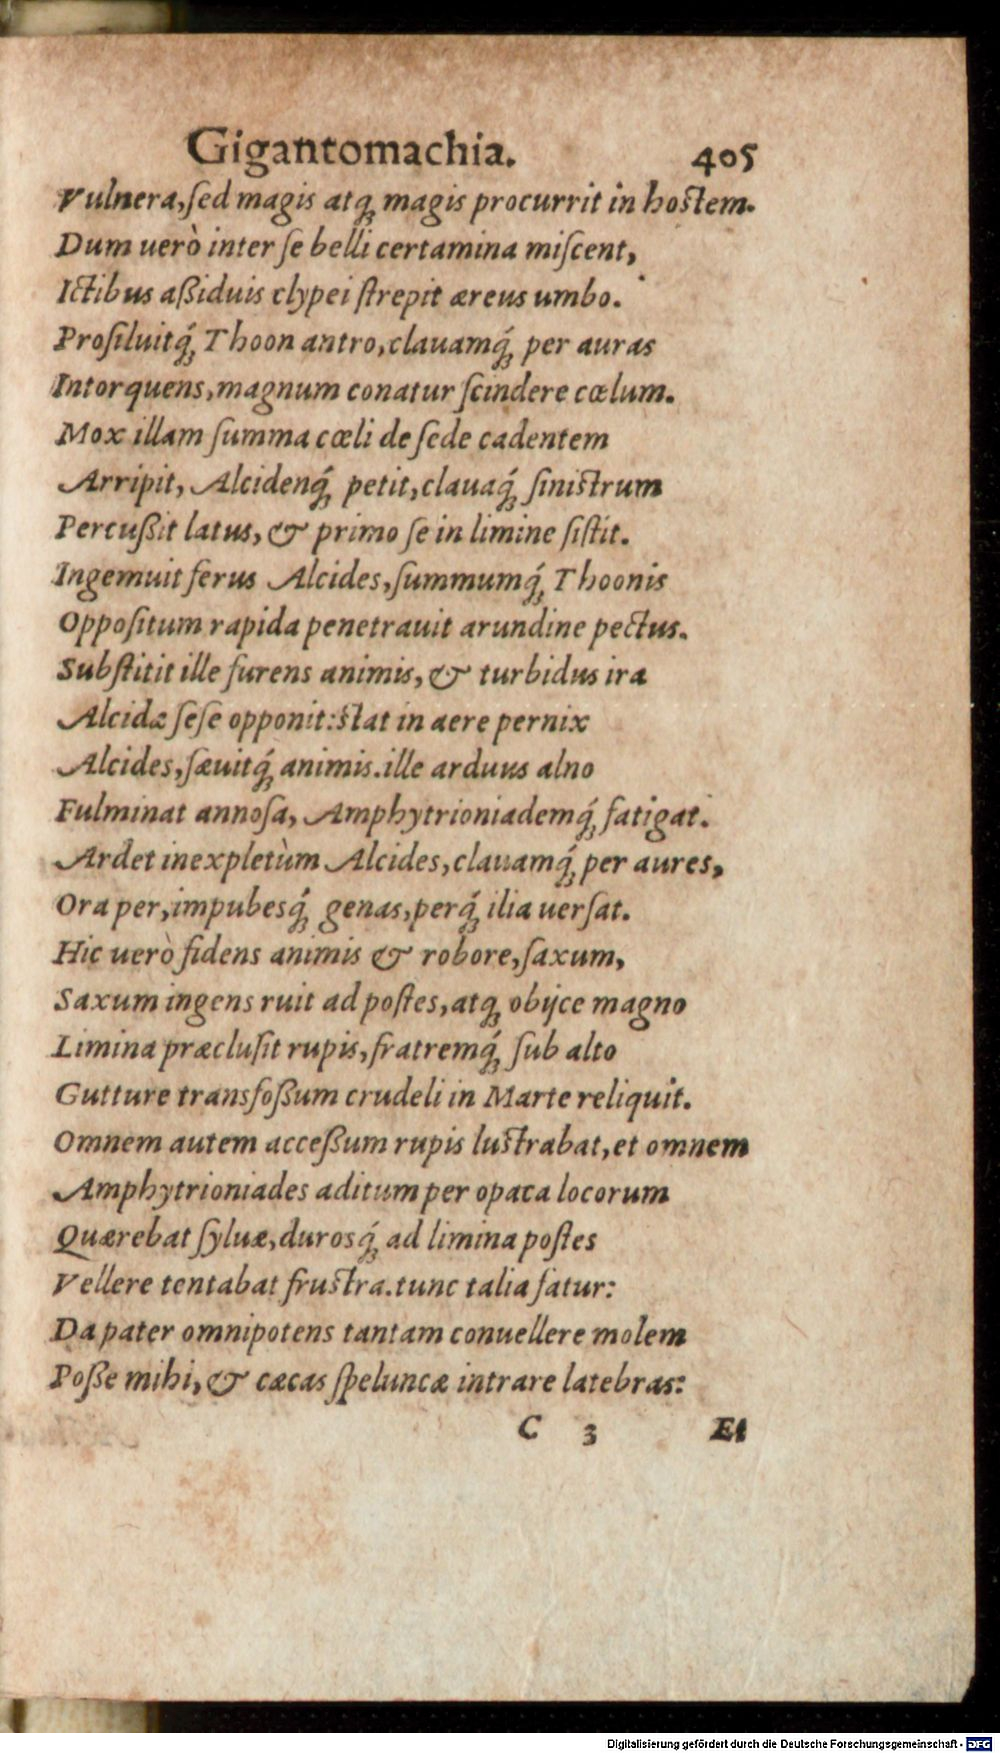 Gigantomachia. 405
Vulnera, ſed magis atq; magis procurrit in hoſtem.
Dum uerò inter ſe belli certamina miſcent,
Ictibus aßiduis clypei ſtrepit æreus umbo.
Proſiluitq́; Thoon antro, clauamq́; per auras
Intorquens, magnum conatur ſcindere cœlum.
Mox illam ſumma cœli de ſede cadentem
Arripit, Alcidenq́; petit, clauaq́; ſiniſtrum
Percußit latus, & primo ſe in limine ſiſtit.
Ingemuit ferus Alcides, ſummumq́; Thoonis
Oppoſitum rapida penetrauit arundine pectus.
Subſtitit ille furens animis, & turbidus ira
Alcidæ ſeſe opponit: ſtat in aere pernix
Alcides, ſæuitq́; animis. ille arduus alno
Fulminat annoſa, Amphytrioniademq́; fatigat.
Ardet inexpletùm Alcides, clauamq́; per aures,
Ora per, impubesq́; genas, perq́; ilia uerſat.
Hic uerò fidens animis & robore, ſaxum,
Saxum ingens ruit ad poſtes, atq; obijce magno
Limina præcluſit rupis, fratremq́; ſub alto
Gutture transfoßum crudeli in Marte reliquit.
Omnem autem acceßum rupis luſtrabat, et omnem
Amphytrioniades aditum per opaca locorum
Quærebat ſyluæ, durosq́; ad limina poſtes
Vellere tentabat fruſtra. tunc talia fatur:
Da pater omnipotens tantam conuellere molem
Poße mihi, & cæcas ſpeluncæ intrare latebras:
C 3 Et
Digitalisierung gefördert durch die Deutsche Forschungsgemeinschaft - DFG